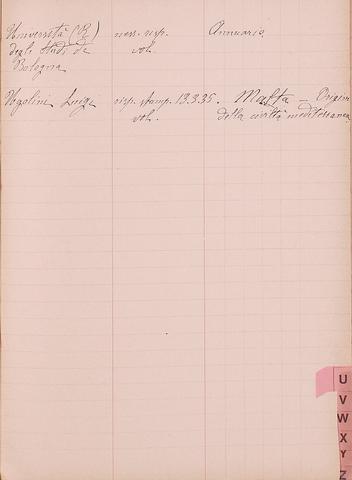 Università (R) ness. risp. Annuario
degli Studi di vol.
Bologna
Ugolini Luigi risp. stamp. 13.3.35. Malta – Origini
vol. della civiltà mediterranea
U
V
W
X
Y
Z